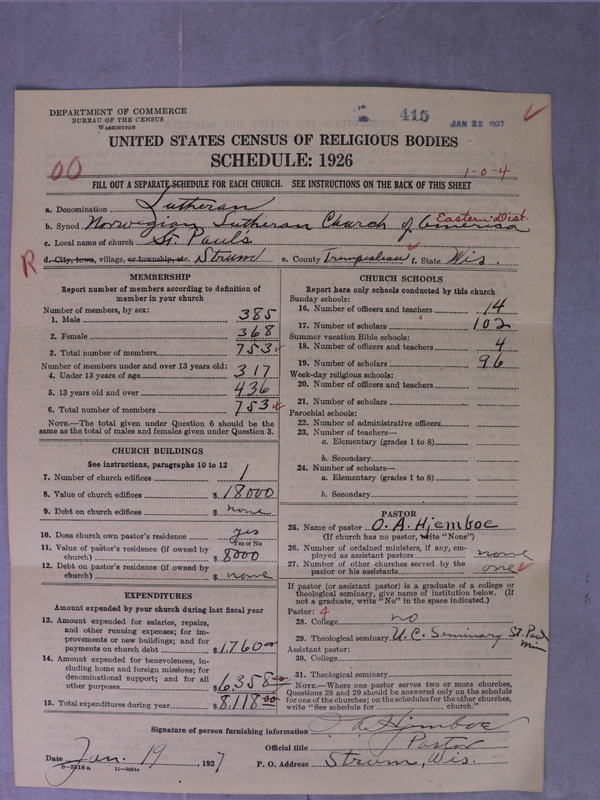 DEPARTMENT OF COMMERCE
BUREAU OF THE CENSUS
WASHINGTON
415
JAN 22 1927
UNITED STATES CENSUS OF RELIGIOUS BODIES
SCHEDULE: 1926
00
1-0-4
FILL OUT A SEPARATE SCHEDULE FOR EACH CHURCH. SEE INSTRUCTIONS ON THE BACK OF THIS SHEET
a. Denomination Lutheran
b. Synod Norwegian Lutheran Church of America Eastern Dist.
c. Local name of church St. Paul's
R
d. City, town, village, or township, etc. Strum e. County Trempealeau f. State Wis.
MEMBERSHIP
Report number of members according to definition of
member in your church
Number of members, by sex:
1. Male 385
2. Female 368
3. Total number of members 753
Number of members under and over 13 years old:
4. Under 13 years of age 317
5. 13 years old and over 436
6. Total number of members 753
NOTE.—The total given under Question 6 should be the
same as the total of males and females given under Question 3.
CHURCH BUILDINGS
See instructions, paragraphs 10 to 12
7. Number of church edifices 1
8. Value of church edifices $ 18000
9. Debt on church edifices $ none
10. Does church own pastor's residence yes
Yes or No
11. Value of pastor's residence (if owned by
church) $ 8000
12. Debt on pastor's residence (if owned by
church) $ none
EXPENDITURES
Amount expended by your church during last fiscal year
13. Amount expended for salaries, repairs,
and other running expenses; for im-
provements or new buildings; and for
payments on church debt $ 1,760 00
14. Amount expended for benevolences, in-
cluding home and foreign missions; for
denominational support; and for all
other purposes $ 6,358 00
15. Total expenditures during year $ 8,118 00
CHURCH SCHOOLS
Report here only schools conducted by this church
Sunday schools:
16. Number of officers and teachers 14
17. Number of scholars 102
Summer vacation Bible schools:
18. Number of officers and teachers 4
19. Number of scholars 96
Week-day religious schools:
20. Number of officers and teachers
21. Number of scholars
Parochial schools:
22. Number of administrative officers
23. Number of teachers—
a. Elementary (grades 1 to 8)
b. Secondary
24. Number of scholars—
a. Elementary (grades 1 to 8)
b. Secondary
PASTOR
25. Name of pastor O. A. Hjemboe
(If church has no pastor, write "None")
26. Number of ordained ministers, if any, em-
ployed as assistant pastors none
27. Number of other churches served by the
pastor or his assistants one
If pastor (or assistant pastor) is a graduate of a college or
theological seminary, give name of institution below. (If
not a graduate, write "No" in the space indicated.)
Pastor: 4
28. College no
29. Theological seminary U.C. Seminary St. Paul Minn
Assistant pastor:
30. College
31. Theological seminary
NOTE.—Where one pastor serves two or more churches,
Questions 28 and 29 should be answered only on the schedule
for one of the churches; on the schedules for the other churches,
write "See schedule for church."
Signature of person furnishing information O. A. Hjemboe
Official title Pastor
Date Jan. 19, 1927 P. O. Address Strum, Wis.
8-5318 a